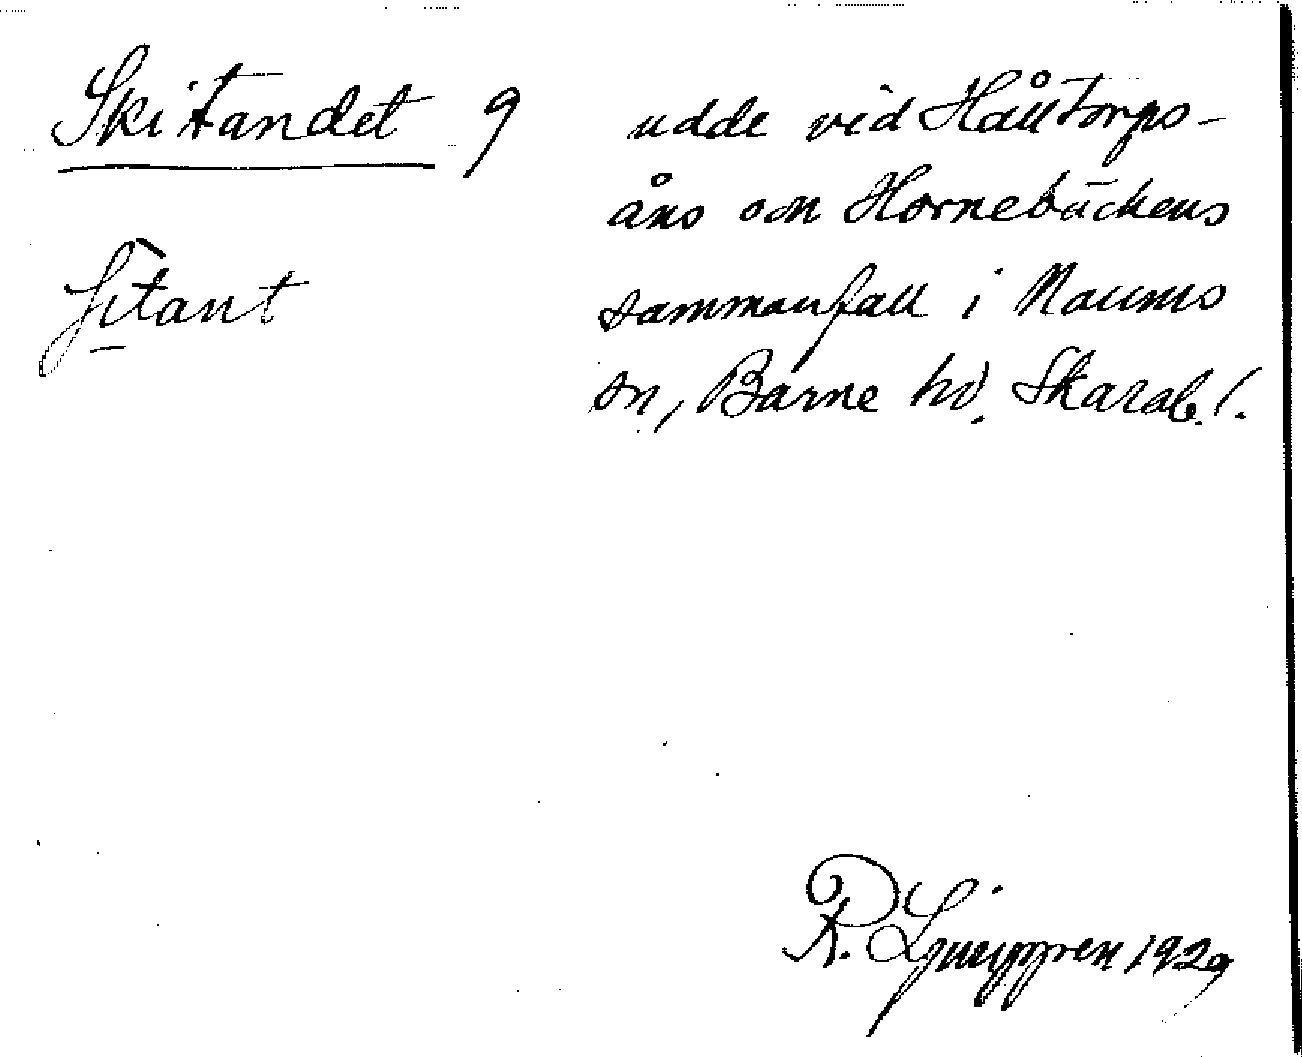 Skitandet 9
ʃitant
udde vid Hålltorps-
åns och Hornebäckens
sammanfall i Naums
sn, Barne hd. Skarab. l.
R. Ljunggren 1929